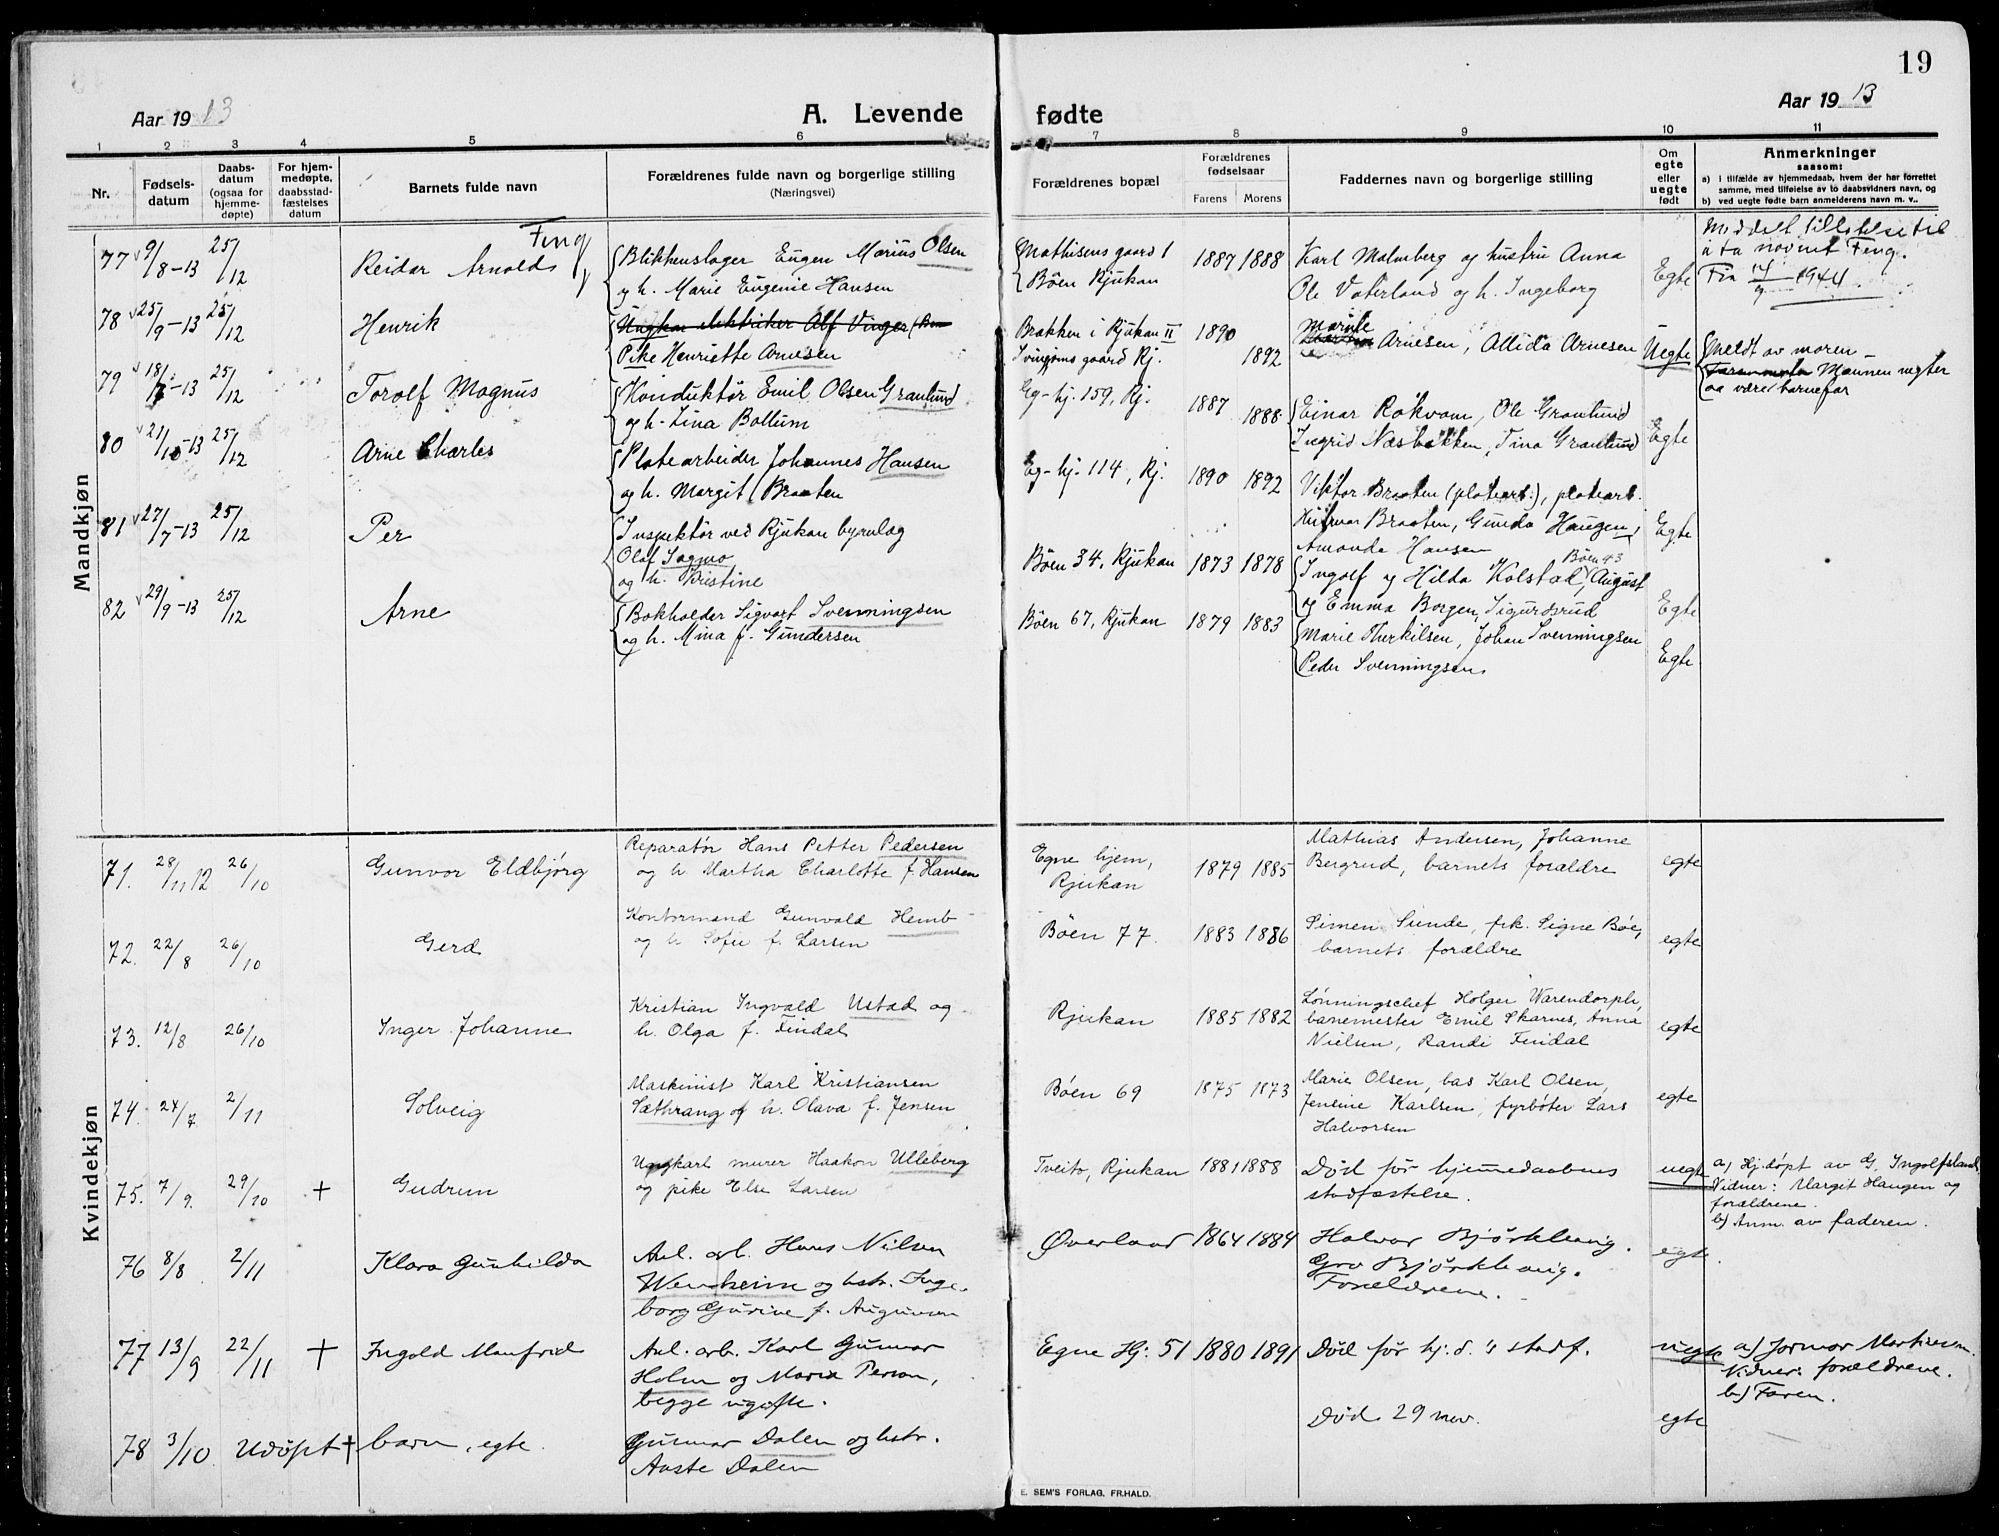 19
Aar 1913
A. Levende
fødte
Aar 1913
1 2 3 4 5 6 7 8 9 10 11
Nr.
Fødsels-
datum
Daabs-
datum
(ogsaa for
hjemme-
døpte)
For hjem-
medøpte,
daabsstad-
fæstelses
datum
Barnets fulde navn
Forældrenes fulde navn og borgerlige stilling
(Næringsvei)
Forældrenes bopæl
Forældrenes
fødselsaar
Farens Morens
Faddernes navn og borgerlige stilling
Om
egte
eller
uegte
født
Anmerkninger
saasom:
a) i tilfælde av hjemmedaab, hvem der har forrettet
samme, med tilføielse av to daabsvidners navn, og
b) ved uegte fødte barn anmelderens navn m. v..
Mandkjøn
77 9/8-13 25/12 Reidar Arnolds Feng
Blikkenslager Eugen Marius Olsen
og h. Marie Eugenie Hansen
Mathisens gaard 1
Bøen Rjukan
1887 1888
Karl Malmberg og hustru Anna
Ole Vaterland og h. Ingeborg
Egte
Meddelt tillatelse til
å ta navnet Feng.
Fin 14/9 1944
78 25/9-13 25/12 Henrik
Ungkar elektriker Alf Vinger
Pike Henriette Arnesen
Brækken i Rjukan II
Svingens gaard Rj.
1890
1892
Marnle
Arnesen, Allida Arnesen
Uegte
Meldt av moren –
Mannen negter
aa være barnefar
79 18/7-13 25/12 Torolf Magnus
Konduktør Emil Olsen Granlund
og h. Lina Bollum
Eg-hj. 159, Rj.
1887 1888
Einar Rokvam, Ole Granlund
Ingrid Næsbakken, Tina Granlund
Egte
80 21/10-13 25/12 Arne Charles
Platearbeider Johannes Hansen
og h. Margit Braaten
Eg-hj. 114, Rj.
1890 1892
Viktor Braaten (platearb.), platearb.
Braaten, Gunda Haugen,
Amanda Hansen
Egte
81 27/7-13 25/12 Per
Inspektør ved Rjukan byanlæg
Olaf Sagmo
og h. Kristine
Bøen 34, Rjukan
1873 1878
Bøen 43
Ingolf og Hilda Kolstad, August
og Emma Borgen, Sigurdsrud
Egte
82 29/9-13 25/12 Arne
Bokholder Sigvart Svenningsen
og h. Mina f. Gundersen
Bøen 67, Rjukan
1879 1883
Marie Therkilsen, Johan Svenningsen
Peder Svenningsen
Egte
Kvindekjøn
71. 28/11 12 26/10 Gunvor Eldbjørg
Reparatør Hans Petter Pedersen
og h. Martha Charlotte f. Hansen
Egne hjem,
Rjukan
1879 1885
Mathias Andersen, Johanne
Bergrud, barnets forældre
egte
72. 22/8 26/10 Gerd
Kontormand Gunvald Hemb
og h. Sofie f. Larsen
Bøen 77.
1883 1886
Simen Sunde, frk. Signe Bøe,
barnets forældre
egte
73. 12/8 26/10 Inger Johanne
Kristian Ingvald Ustad og
h. Olga f. Findal
Rjukan
1885 1882
Lønningschef Holger Warendorph,
banemester Emil Skarnes, Anna
Nielsen, Randi Findal
egte
74. 24/7 2/11 Solveig
Maskinist Karl Kristiansen
Sæthrang og h. Olava f. Jensen
Bøen 69
1875 1873
Marie Olsen, bas Karl Olsen,
Jenine Karlsen, fyrbøter Lars
Halvorsen
egte
75. 7/9. 29/10 + Gudrun
Ungkarl murer Haakon Ulleberg
og pike Else Larsen
Tveito, Rjukan
1881 1888
Død før hjemmedaabens
stadfæstelse.
uegte
a) Hjdøpt av G. Ingolfsland.
Vidner: Margit Haugen og
forældrene.
b) Anm. av faderen.
76 8/8 2/11 Klara Gunhilda
Anl. arb. Hans Nilsen
Wenheim og hstr. Inge-
borg Gurine f. Augunson
Øverland
1864 1884
Halvor Bjørkhaug.
Gro Bjørkhaug.
Forældrene.
egte.
77 13/9 22/11 + Ingold Manfrid
Anl. arb. Karl Gunnar
Holm og Maria Person,
begge ugifte.
Egne Hj. 51
1880 1891
Død før hj. d.'s stadf.
uegte
a) Jormar Martinsen.
Vidner: forældrene.
b) Faren.
78 3/10. Udøpt + barn, egte.
Gunnar Dalen og hstr.
Aaste Dalen
Død 29 nov.
egte
E. SEM'S FORLAG, FR.HALD.